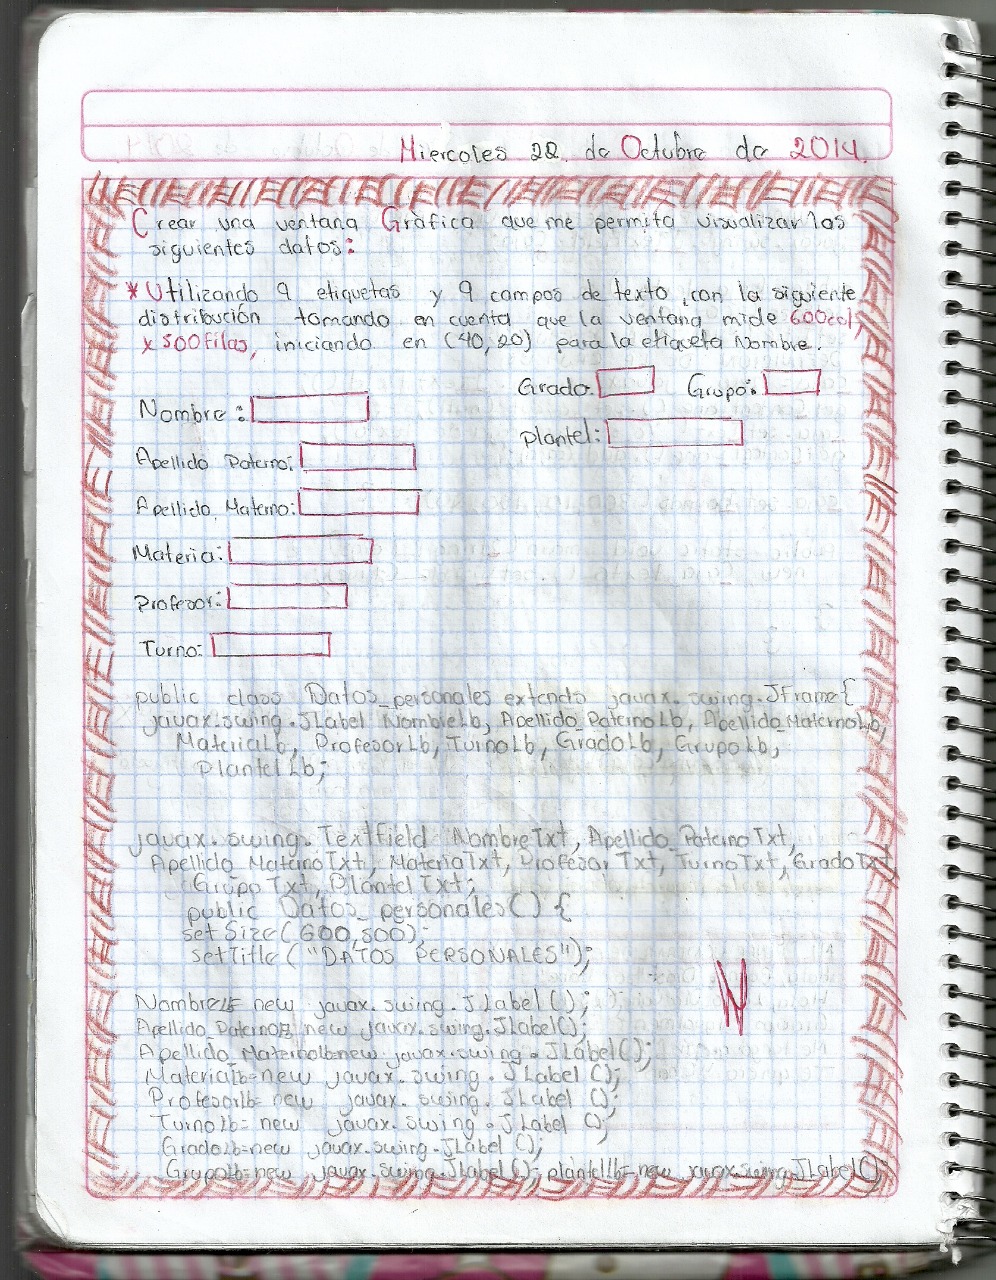 Miercoles 22 de Octubre de 2014.
Crear una ventana Gráfica que me permita visualizar los
siguientes datos:
*Utilizando 9 etiquetas y 9 campos de texto, con la siguiente
distribución tomando en cuenta que la ventana mide 600col,
x 500filas, iniciando en (40,20) para la etiqueta Nombre.
Grado: Grupo:
Nombre:
Plantel:
Apellido Paterno:
Apellido Materno:
Materia:
Profesor:
Turno:
public class Datos_personales extends javax.swing.JFrame{
javax.swing.JLabel NombreLb, Apellido_PaternoLb, Apellido_MaternoLb,
MateriaLb, ProfesorLb, TurnoLb, GradoLb, GrupoLb,
PlantelLb;
javax.swing.TextField NombreTxt, Apellido_PaternoTxt,
Apellido_MaternoTxt, MateriaTxt, ProfesorTxt, TurnoTxt, GradoTxt
GrupoTxt, PlantelTxt;
public Datos_personales() {
setSize(600,500);
setTitle("DATOS PERSONALES");
Nombrelb= new javax.swing.JLabel();
Apellido_Paternolb= new javax.swing.JLabel();
Apellido_Maternolb=new javax.swing.JLabel();
Materialb=new javax.swing.JLabel();
Profesorlb= new javax.swing.JLabel();
Turnolb= new javax.swing.JLabel();
Gradolb=new javax.swing.JLabel();
Grupolb=new javax.swing.JLabel(); plantellb=new javax.swing.JLabel()